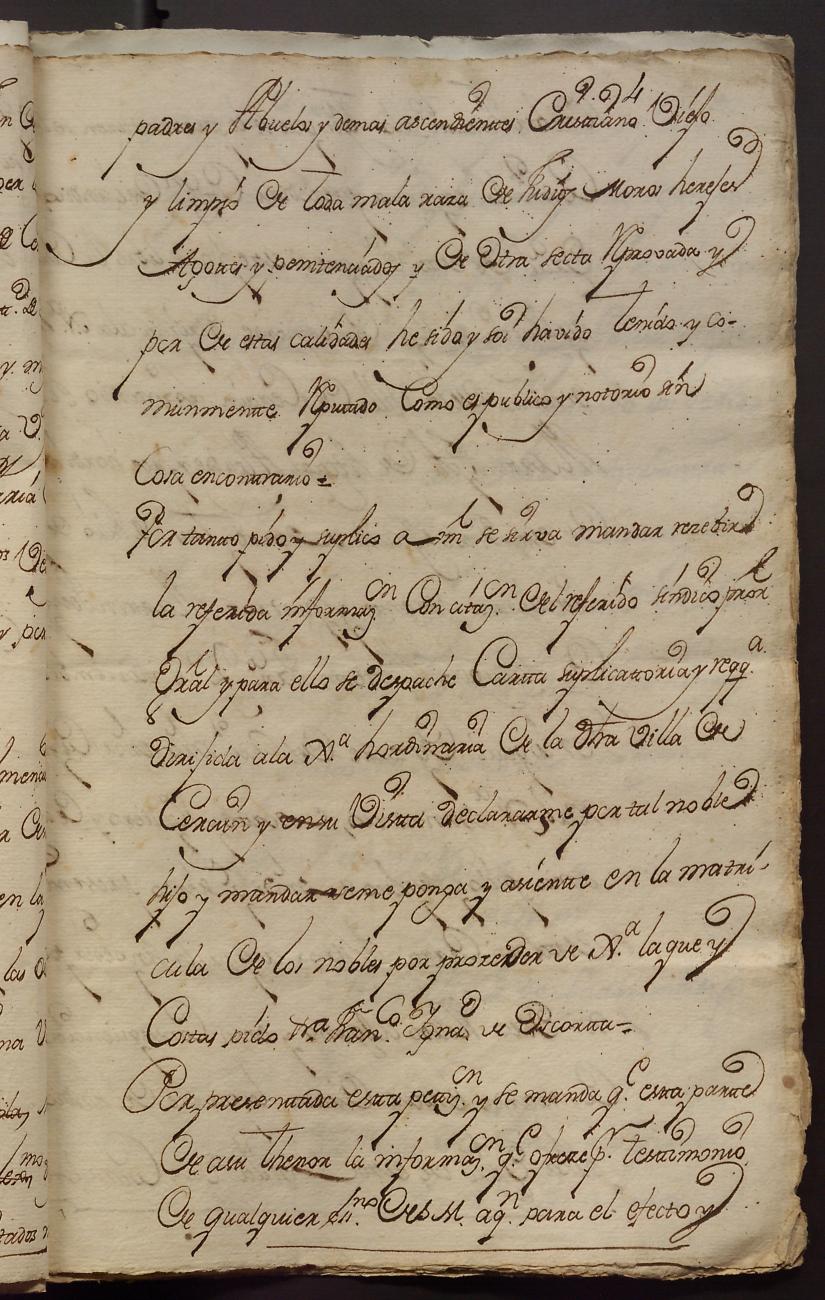 padres y Abuelos y demas ascendientes Cristiano Viejo
y limpio de toda mala raza de Judios Moros herejes
y penitenciados y de otra secta Reprovada y
por de estas calidades he sido y soi havido tenido y co-
munmente Reputado Como es publico y notorio sin
Cosa encontrario =
Por tanto pido y suplico a Vm se sirva mandar rezebir
la referida informazon Con citazon del referido sindico pror
Gral y para ello se despache Carta suplicattoria y reqq.a
dirijida ala X.a hordinaria de la dha Villa de
y en su Vista declararme por tal noble
hijo y mandar se me ponga y asiente en la matri-
cula de los nobles por prozeder de X.a la que y
Costas pido Fran.co Ygna.o de =
Por presentada esta petizon y se manda q.e esta parte
de asu thenor la informazon q.e ofreze p.r testimonio
de qualquier de S.M. aq.n para el efecto y